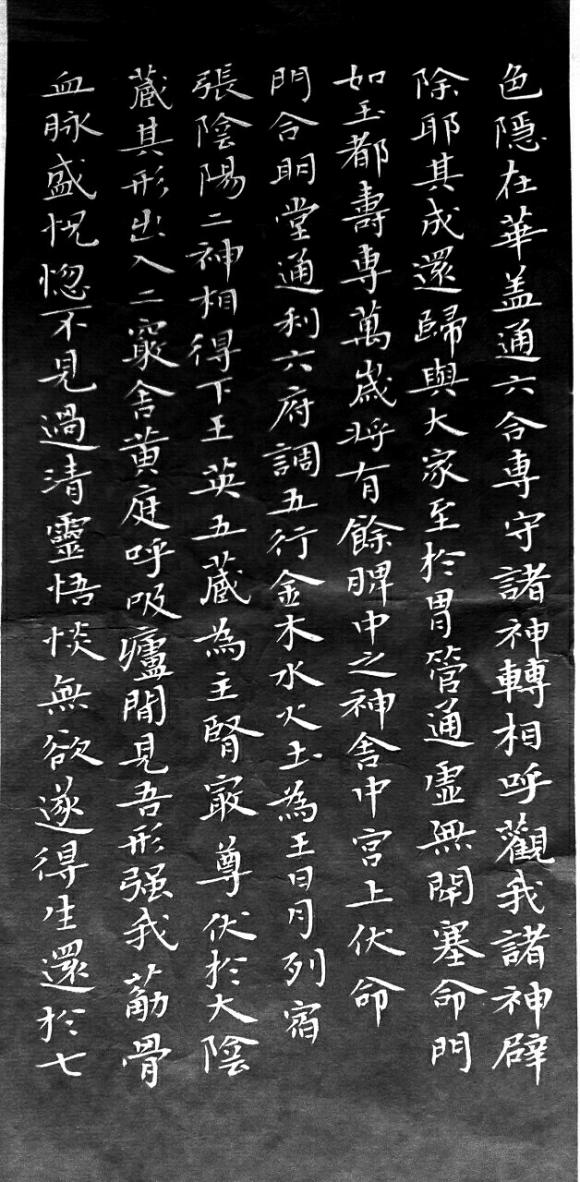 色隱在華盖通六合専守諸神轉相呼觀我諸神辟
除耶其成還歸與大家至於胃管通虛無閉塞命門
如玉都壽専萬歲將有餘脾中之神舍中宫上伏命
門合明堂通利六府調五行金木水火土為王日月列宿
張陰陽二神相得下王英五藏為主腎㝡尊伏於大陰
藏其形出入二竅舍黄庭呼吸廬間見吾形强我筋骨
血脉盛怳惚不見過清靈恬惔無欲遂得生還於七